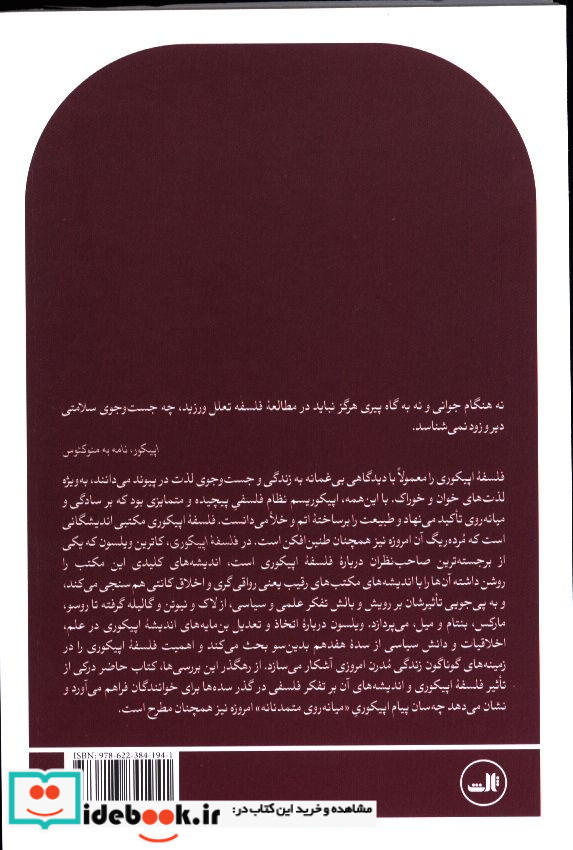 نه هنگام جوانی و نه به گاه پیری هرگز نباید در مطالعهٔ فلسفه تعلل ورزید، چه جست‌وجوی سلامتی
دیر و زود نمی‌شناسد.
اپیکور، نامه به منوکئوس
فلسفهٔ اپیکوری را معمولاً با دیدگاهی بی‌غمانه به زندگی و جست‌وجوی لذت در پیوند می‌دانند، به‌ویژه
لذت‌های خوان و خوراک. با این‌همه، اپیکوریسم نظام فلسفیِ پیچیده و متمایزی بود که بر سادگی و
میانه‌روی تأکید می‌نهاد و طبیعت را برساختهٔ اتم و خلأ می‌دانست. فلسفهٔ اپیکوری مکتبی اندیشگانی
است که مُرده‌ریگ آن امروزه نیز همچنان طنین‌افکن است. در فلسفهٔ اپیکوری، کاترین ویلسون که یکی
از برجسته‌ترین صاحب‌نظران دربارهٔ فلسفهٔ اپیکوری است، اندیشه‌های کلیدی این مکتب را
روشن داشته آن‌ها را با اندیشه‌های مکتب‌های رقیب یعنی رواقی‌گری و اخلاق کانتی هم‌سنجی می‌کند،
و به پی‌جویی تأثیرشان بر رویش و بالش تفکر علمی و سیاسی، از لاک و نیوتن و گالیله گرفته تا روسو،
مارکس، بنتام و میل، می‌پردازد. ویلسون دربارهٔ اتخاذ و تعدیل بن‌مایه‌های اندیشهٔ اپیکوری در علم،
اخلاقیات و دانش سیاسی از سدهٔ هفدهم بدین‌سو بحث می‌کند و اهمیت فلسفهٔ اپیکوری را در
زمینه‌های گوناگون زندگی مُدرن امروزی آشکار می‌سازد. از رهگذر این بررسی‌ها، کتاب حاضر درکی از
تأثیر فلسفهٔ اپیکوری و اندیشه‌های آن بر تفکر فلسفی در گذر سده‌ها برای خوانندگان فراهم می‌آورد و
نشان می‌دهد چه‌سان پیام اپیکوریِ «میانه‌روی متمدنانه» امروزه نیز همچنان مطرح است.
ISBN: 978-622-384-194-1
ثالث
مشاهده و خرید این کتاب در:
idebook.ir